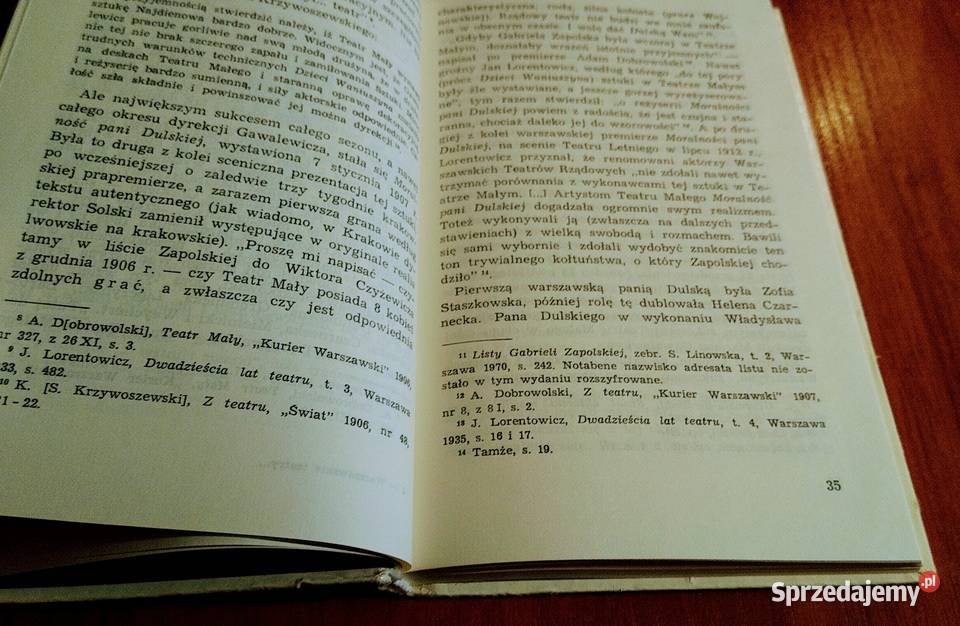 stwierdzić należy, iż Teatr Mały
sztukę Najdienowa bardzo dobrze. Widocznym jest, że
lewicz pracuje gorliwie nad swą młodą drużyną, a w
nie tej nie brak szczerego zapału i zamiłowania sztuki.
trudnych warunków technicznych Dzieci Waniuszyna
na deskach Teatru Małego i staranną oprawę
i reżyserię bardzo sumienną, i siły aktorskie odpowiednie.
łość szła składnie i powinszować jej można dyrekcji
Ale największym sukcesem całego sezonu, a nawet
całego okresu dyrekcji Gawalewicza, stała się Moral-
ność pani Dulskiej, wystawiona 7 stycznia 1907 r.
Była to druga z kolei sceniczna prezentacja tej sztuki,
po wcześniejszej o zaledwie trzy tygodnie krakow-
skiej prapremierze, a zarazem pierwsza grana według
tekstu autentycznego (jak wiadomo, w Krakowie dy-
rektor Solski zamienił występujące w oryginale realia
lwowskie na krakowskie). „Proszę mi napisać — czy-
tamy w liście Zapolskiej do Wiktora Czyżewicza
z grudnia 1906 r. — czy Teatr Mały posiada 8 kobiet
zdolnych grać, a zwłaszcza czy jest odpowiednia
8 A. D[obrowolski], Teatr Mały, „Kurier Warszawski" 1906,
nr 327, z 26 XI, s. 3.
9 J. Lorentowicz, Dwadzieścia lat teatru, t. 3, Warszawa
33, s. 482.
10 K. [S. Krzywoszewski], Z teatru, „Świat" 1906, nr 48,
21 – 22.
charakterystyczna, ruda, silna kobieta (prócz Woj-
nowskiej). Rządowy teatr nie budzi we mnie zaufa-
nia w obecnym czasie i wolę dać Dulską Wam" 11.
„Gdyby Gabriela Zapolska była wczoraj w Teatrze
Małym, doznałaby wrażeń istotnie przyjemnych" —
napisał po premierze Adam Dobrowolski 12. Nawet
groźny Jan Lorentowicz, według którego „do tej pory
(prócz Dzieci Waniuszyna) sztuki w Teatrze Małym
były źle wystawiane, a jeszcze gorzej wyreżyserowa-
ne", tym razem stwierdził: „o reżyserii Moralności
pani Dulskiej powiem z radością, że jest czujna i sta-
ranna, chociaż daleko jej do wzorowości" 13. A po dru-
giej z kolei warszawskiej premierze Moralności pani
Dulskiej, na scenie Teatru Letniego w lipcu 1912 r.,
Lorentowicz przyznał, że renomowani aktorzy War-
szawskich Teatrów Rządowych „nie zdołali nawet wy-
trzymać porównania z wykonawcami tej sztuki w Te-
atrze Małym. [...] Artystom Teatru Małego Moralność
pani Dulskiej dogadzała ogromnie swym realizmem.
Toteż wykonywali ją (zwłaszcza na dalszych przed-
stawieniach) z wielką swobodą i rozmachem. Bawili
się sami wybornie i zdołali wydobyć znakomicie ten
ton trywialnego kołtuństwa, o który Zapolskiej cho-
dziło" 14.
Pierwszą warszawską panią Dulską była Zofia
Staszkowska, później rolę tę dublowała Helena Czar-
necka. Pana Dulskiego w wykonaniu Władysława
11 Listy Gabrieli Zapolskiej, zebr. S. Linowska, t. 2, War-
szawa 1970, s. 242. Notabene nazwisko adresata listu nie zo-
stało w tym wydaniu rozszyfrowane.
12 A. Dobrowolski, Z teatru, „Kurier Warszawski" 1907,
nr 8, z 8 I, s. 2.
13 J. Lorentowicz, Dwadzieścia lat teatru, t. 4, Warszawa
1935, s. 16 i 17.
14 Tamże, s. 19.
35
Sprzedajemy.pl